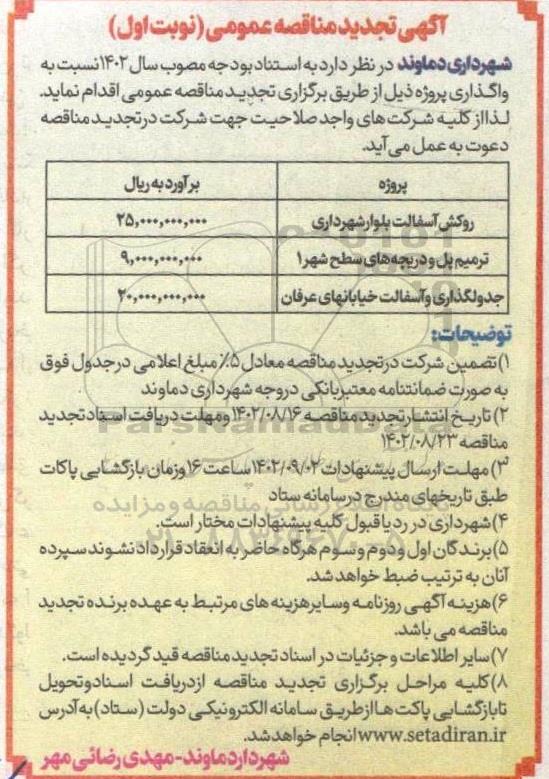 آگهی تجدید مناقصه عمومی (نوبت اول)
شهرداری دماوند در نظر دارد به استناد بودجه مصوب سال ۱۴۰۲ نسبت به
واگذاری پروژه ذیل از طریق برگزاری تجدید مناقصه عمومی اقدام نماید.
لذا از کلیه شرکت های واجد صلاحیت جهت شرکت در تجدید مناقصه
دعوت به عمل می آید.
پروژه برآورد به ریال
روکش آسفالت بلوار شهرداری ۲۵,۰۰۰,۰۰۰,۰۰۰
ترمیم پل و دریچه های سطح شهر ۱ ۹,۰۰۰,۰۰۰,۰۰۰
جدولگذاری و آسفالت خیابانهای عرفان ۲۰,۰۰۰,۰۰۰,۰۰۰
توضیحات:
۱) تضمین شرکت در تجدید مناقصه معادل ۵٪ مبلغ اعلامی در جدول فوق
به صورت ضمانتنامه معتبر بانکی در وجه شهرداری دماوند
۲) تاریخ انتشار تجدید مناقصه ۱۴۰۲/۰۸/۱۶ و مهلت دریافت اسناد تجدید
مناقصه ۱۴۰۲/۰۸/۲۳
۳) مهلت ارسال پیشنهادات ۱۴۰۲/۰۹/۰۲ ساعت ۱۶ و زمان بازگشایی پاکات
طبق تاریخهای مندرج در سامانه ستاد
۴) شهرداری در رد یا قبول کلیه پیشنهادات مختار است.
۵) برندگان اول و دوم و سوم هرگاه حاضر به انعقاد قرارداد نشوند سپرده
آنان به ترتیب ضبط خواهد شد.
۶) هزینه آگهی روزنامه و سایر هزینه های مرتبط به عهده برنده تجدید
مناقصه می باشد.
۷) سایر اطلاعات و جزئیات در اسناد تجدید مناقصه قید گردیده است.
۸) کلیه مراحل برگزاری تجدید مناقصه از دریافت اسناد و تحویل
تا بازگشایی پاکت ها از طریق سامانه الکترونیکی دولت (ستاد) به آدرس
www.setadiran.ir انجام خواهد شد.
شهردار دماوند - مهدی رضائی مهر